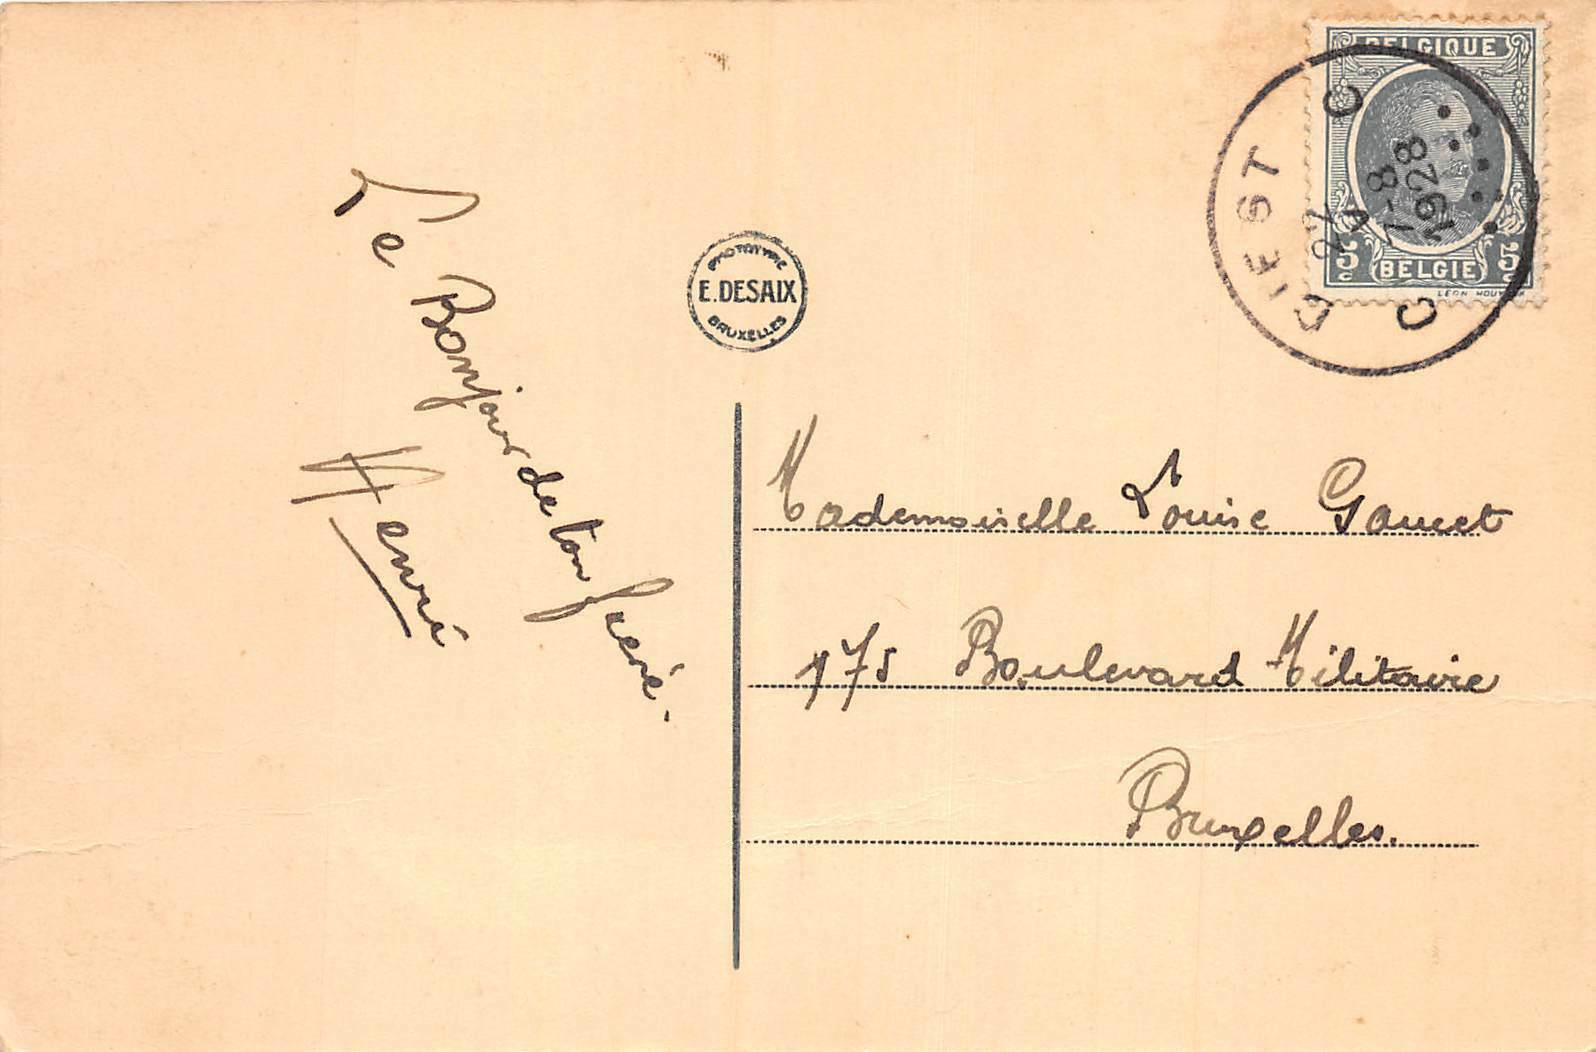 Le Bonjour de ton frère.
Henri
PHOTOTYPIE
E. DESAIX
BRUXELLES
BELGIQUE
5c BELGIE 5c
DIEST
22
V
7-8
1928
C C
Mademoiselle Louise
175 Boulevard Militaire
Bruxelles.